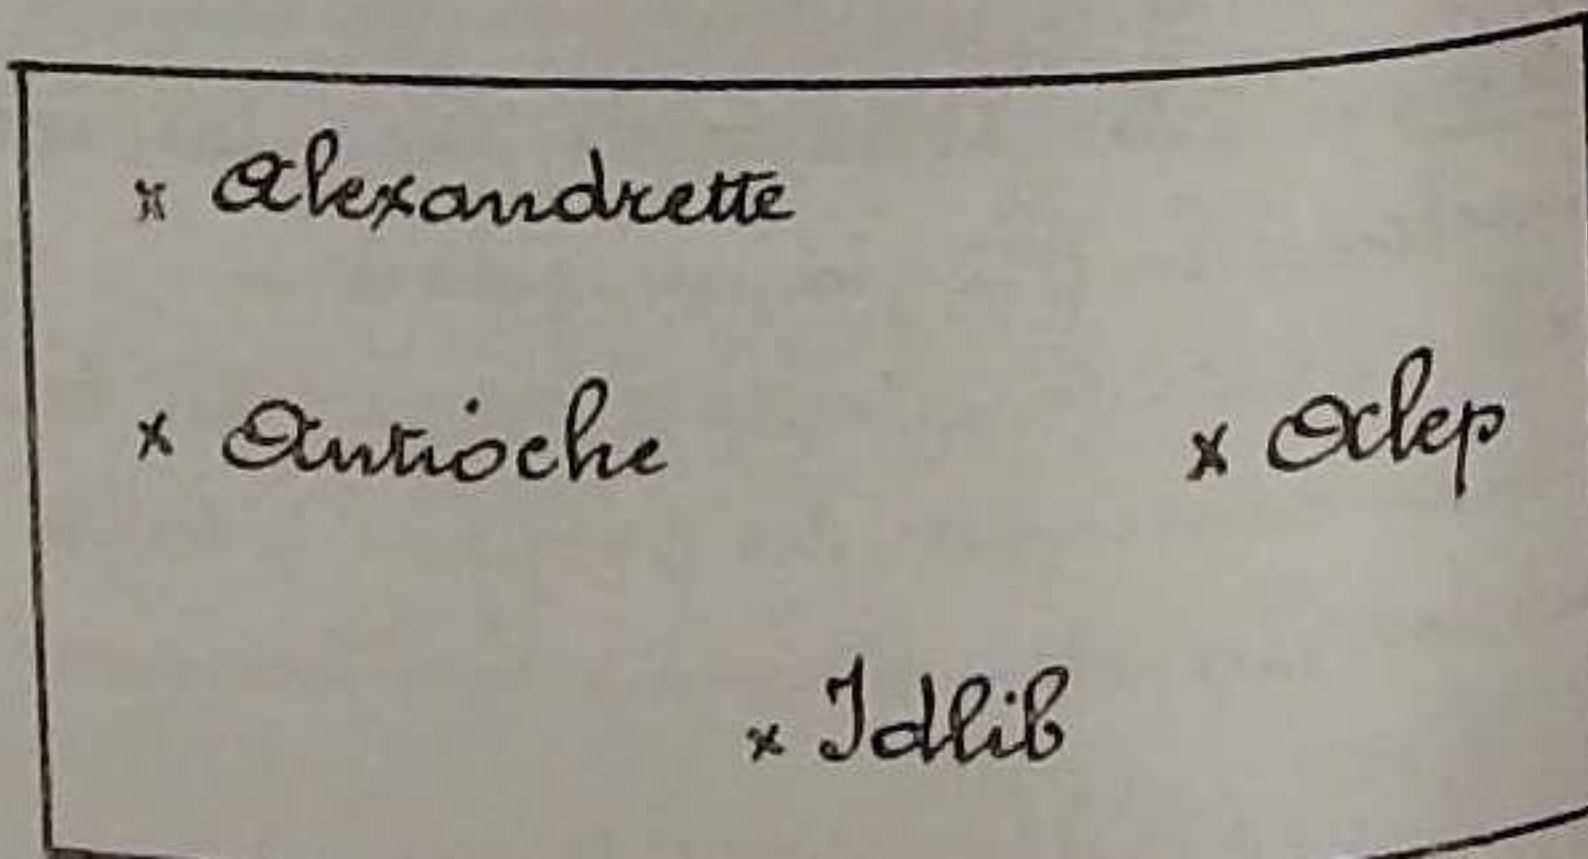 × Alexandrette
× Antioche
× Alep
× Idlib